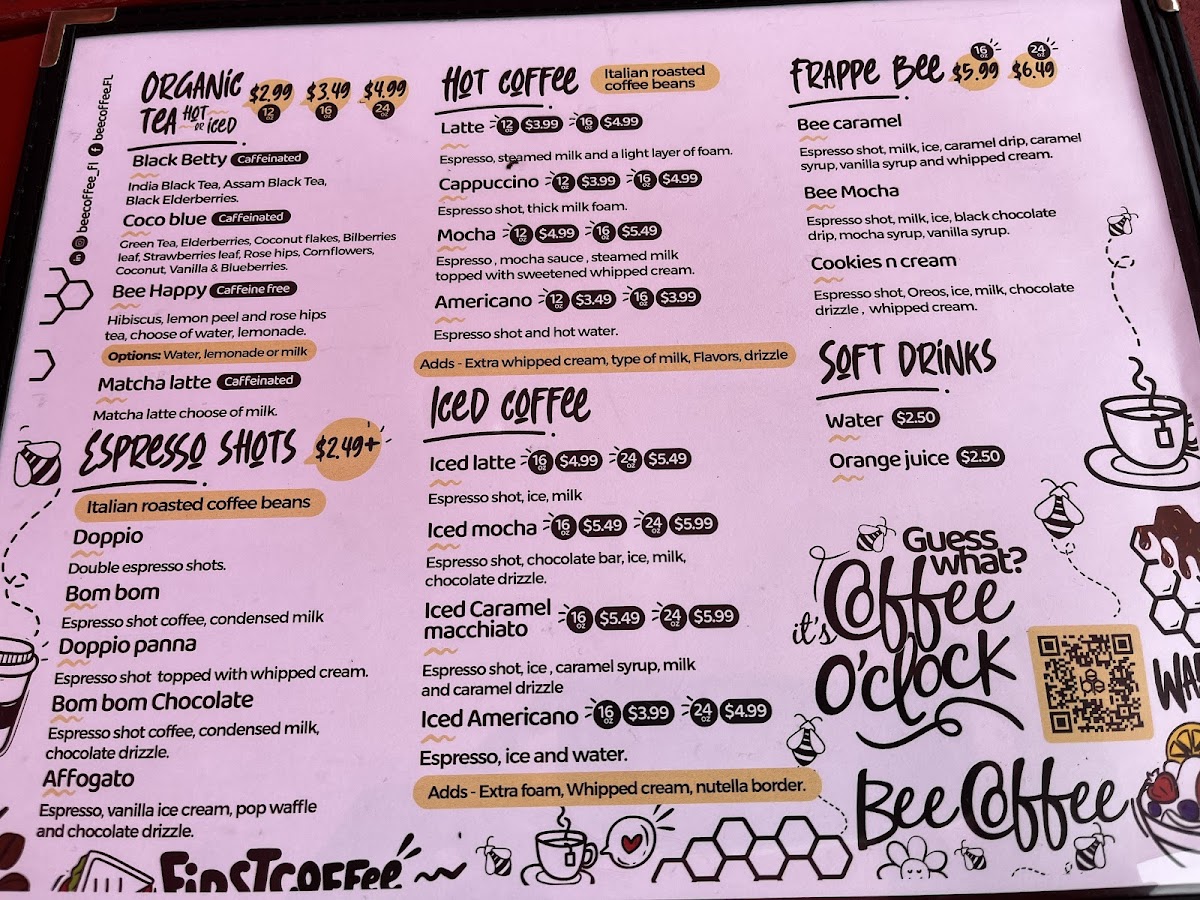 beecoffee_Fl beecoffee.FL
ORGANIC
TEA HOT or ICED
$2.99 $3.49 $4.99
12 16 24
Black Betty Caffeinated
India Black Tea, Assam Black Tea,
Black Elderberries.
Coco blue Caffeinated
Green Tea, Elderberries, Coconut flakes, Bilberries
leaf, Strawberries leaf, Rose hips, Cornflowers,
Coconut, Vanilla & Blueberries.
Bee Happy Caffeine free
Hibiscus, lemon peel and rose hips
tea, choose of water, lemonade.
Options: Water, lemonade or milk
Matcha latte Caffeinated
Matcha latte choose of milk.
ESPRESSO SHOTS $2.49+
Italian roasted coffee beans
Doppio
Double espresso shots.
Bom bom
Espresso shot coffee, condensed milk
Doppio panna
Espresso shot topped with whipped cream.
Bom bom Chocolate
Espresso shot coffee, condensed milk,
chocolate drizzle.
Affogato
Espresso, vanilla ice cream, pop waffle
and chocolate drizzle.
FIRST COFFEE
HOT COFFEE
Italian roasted
coffee beans
Latte 12 oz $3.99 16 oz $4.99
Espresso, steamed milk and a light layer of foam.
Cappuccino 12 oz $3.99 16 oz $4.99
Espresso shot, thick milk foam.
Mocha 12 oz $4.99 16 oz $5.49
Espresso , mocha sauce , steamed milk
topped with sweetened whipped cream.
Americano 12 oz $3.49 16 oz $3.99
Espresso shot and hot water.
Adds - Extra whipped cream, type of milk, Flavors, drizzle
ICED COFFEE
Iced latte 16 oz $4.99 24 oz $5.49
Espresso shot, ice, milk
Iced mocha 16 oz $5.49 24 oz $5.99
Espresso shot, chocolate bar, ice, milk,
chocolate drizzle.
Iced Caramel
macchiato 16 oz $5.49 24 oz $5.99
Espresso shot, ice , caramel syrup, milk
and caramel drizzle
Iced Americano 16 oz $3.99 24 oz $4.99
Espresso, ice and water.
Adds - Extra foam, Whipped cream, nutella border.
FRAPPE BEE
16 oz 24 oz
$5.99 $6.49
Bee caramel
Espresso shot, milk, ice, caramel drip, caramel
syrup, vanilla syrup and whipped cream.
Bee Mocha
Espresso shot, milk, ice, black chocolate
drip, mocha syrup, vanilla syrup.
Cookies n cream
Espresso shot, Oreos, ice, milk, chocolate
drizzle , whipped cream.
SOFT DRINKS
Water $2.50
Orange juice $2.50
Guess
what?
it's Coffee
O'clock
Bee Coffee